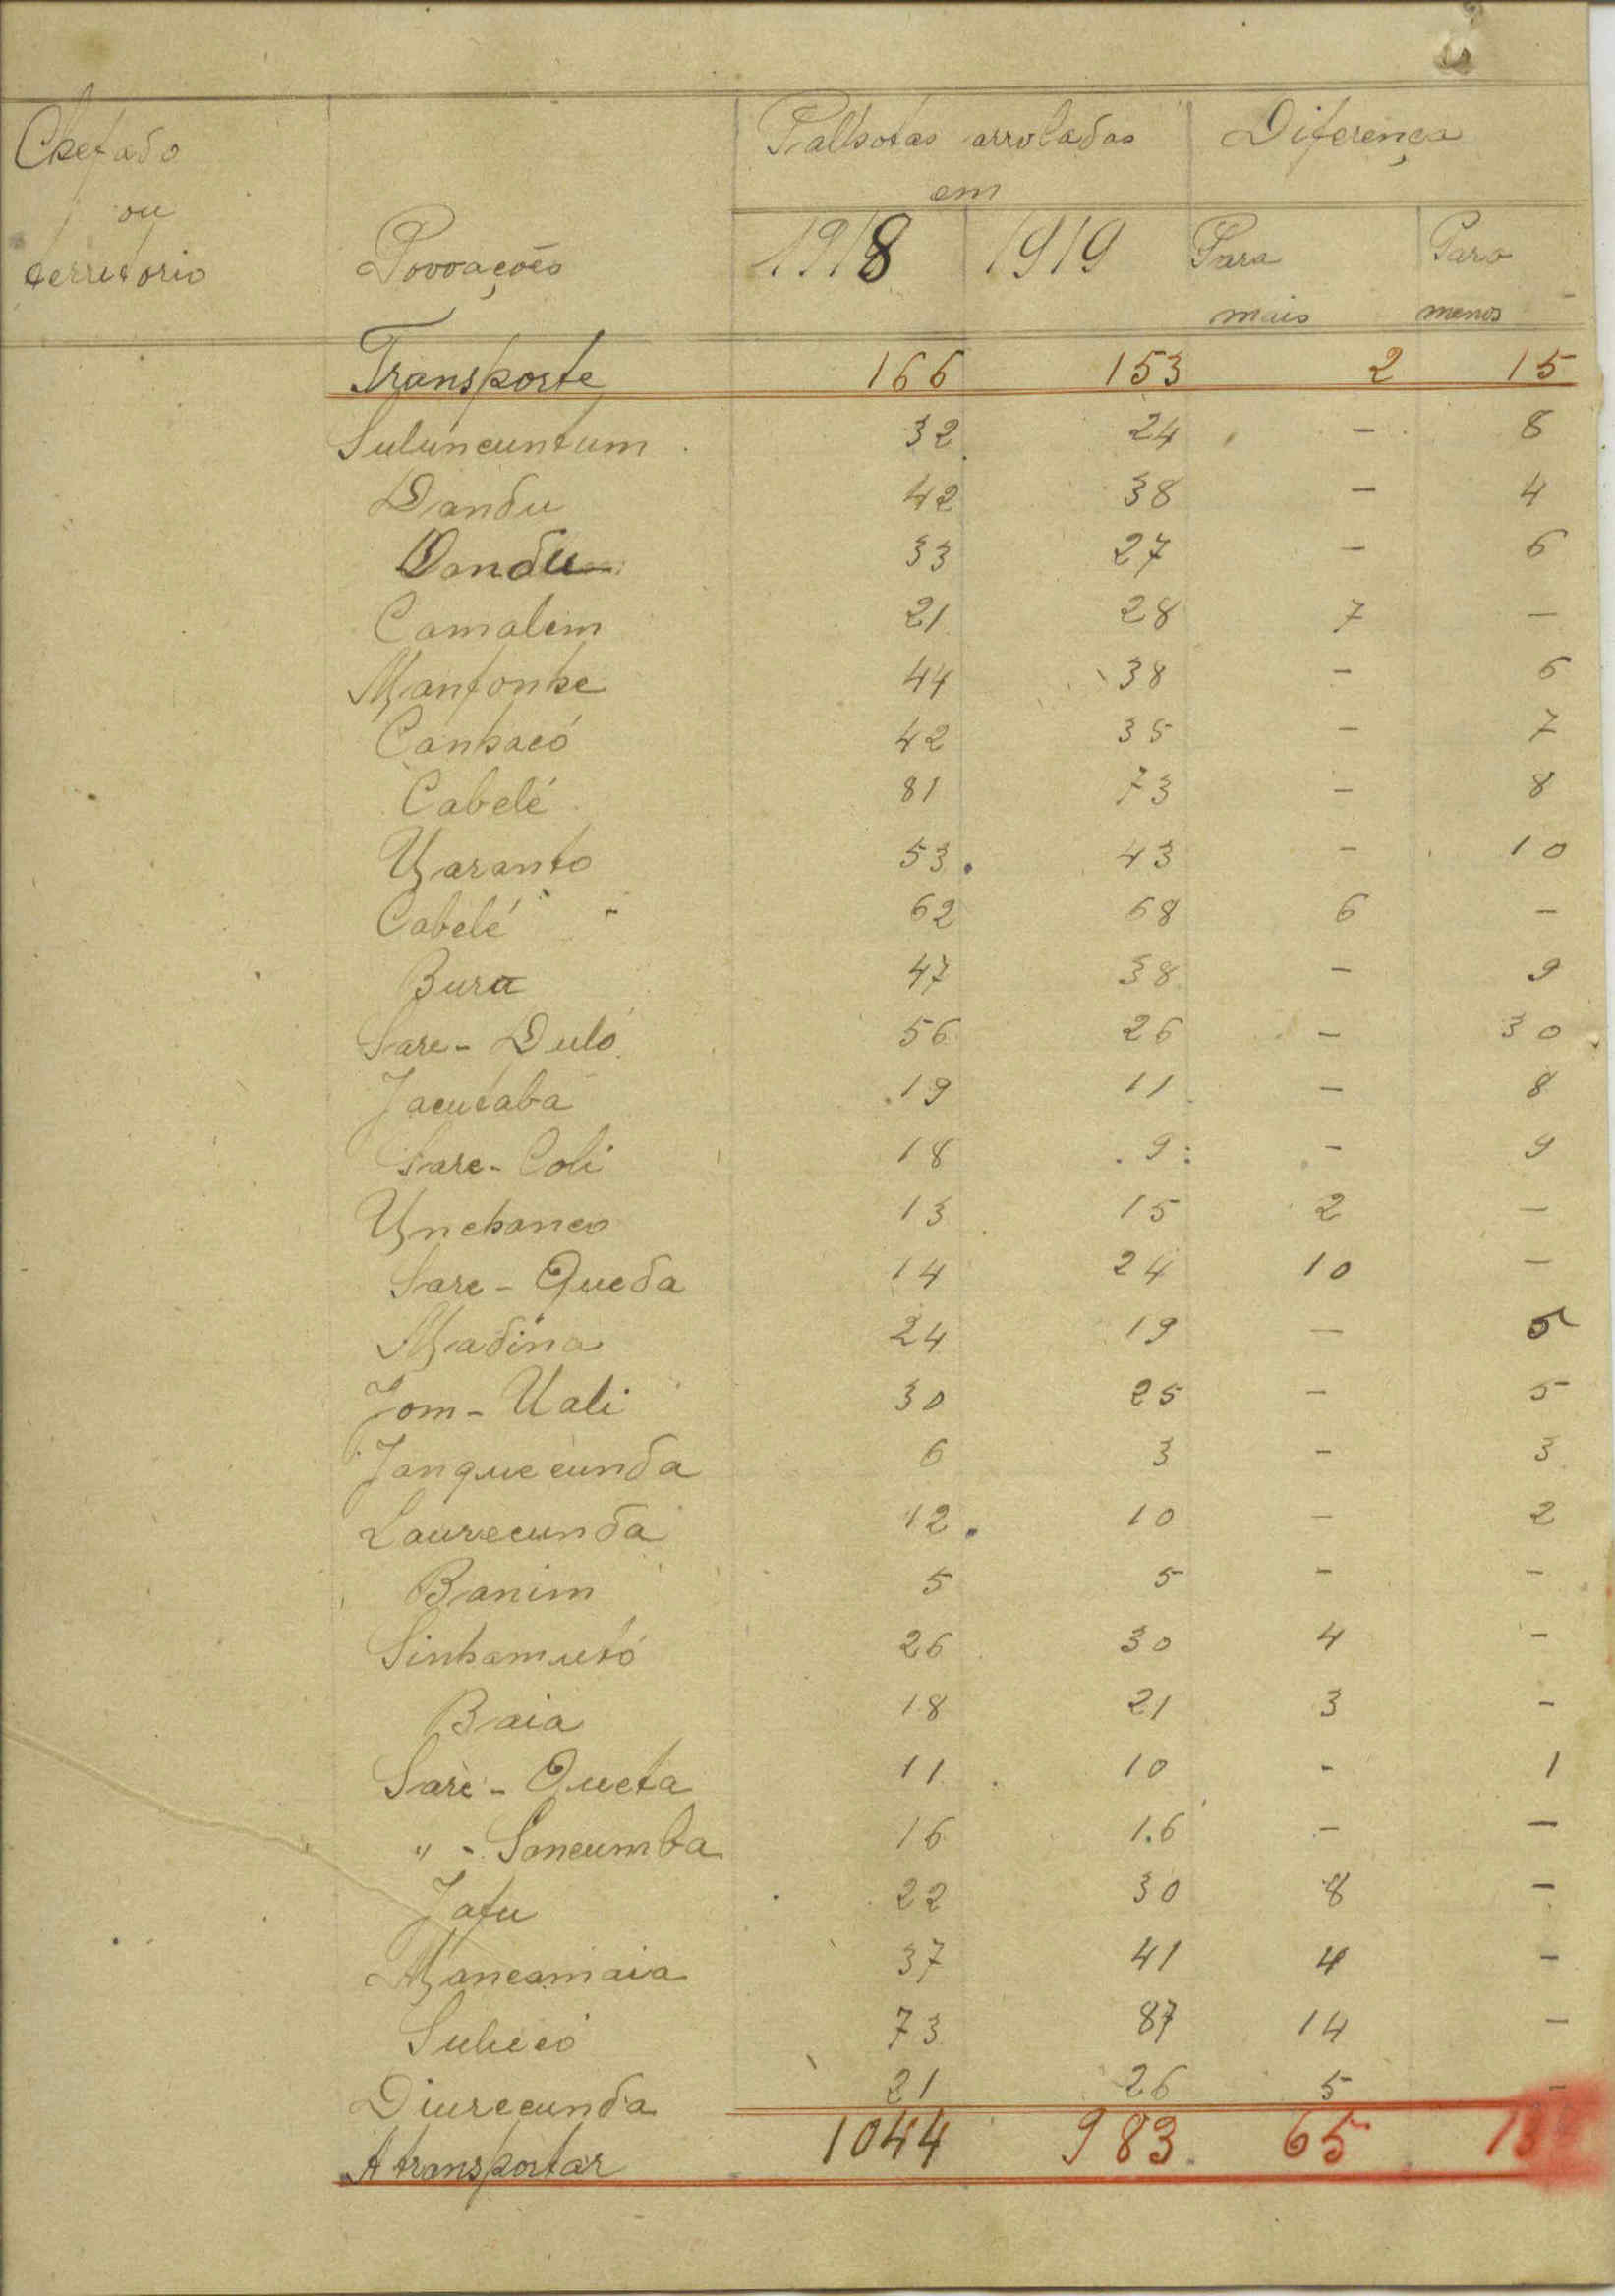 Chefado ou territorio
Povoações
Palhotas arroladas em
Diferença
1918 1919 Para mais Para menos
Transporte 166 153 2 15
Suluncuntum 32 24 - 8
Dandu 42 38 - 4
Dandu 33 27 - 6
Camalim 21 28 7 -
Manfonhe 44 38 - 6
Canhacó 42 35 - 7
Cabelé 81 73 - 8
Uaranto 53 43 - 10
Cabelé 62 68 6 -
Bura 47 38 - 9
Sare - Duló 56 26 - 30
Jacutaba 19 11 - 8
Sare - Coli 18 9 - 9
Unchanco 13 15 2 -
Sare - Queda 14 24 10 -
Madina 24 19 - 5
Jom - Uali 30 25 - 5
Janquecunda 6 3 - 3
Laurecunda 12 10 - 2
Banim 5 5 - -
Sinhamutó 26 30 4 -
Baia 18 21 3 -
Sarè - Queta 11 10 - 1
" - Soncumba 16 16 - -
Jafu 22 30 8 -
Mancamaia 37 41 4 -
73 87 14 -
Diurecunda 21 26 5 -
A transportar 1044 983 65